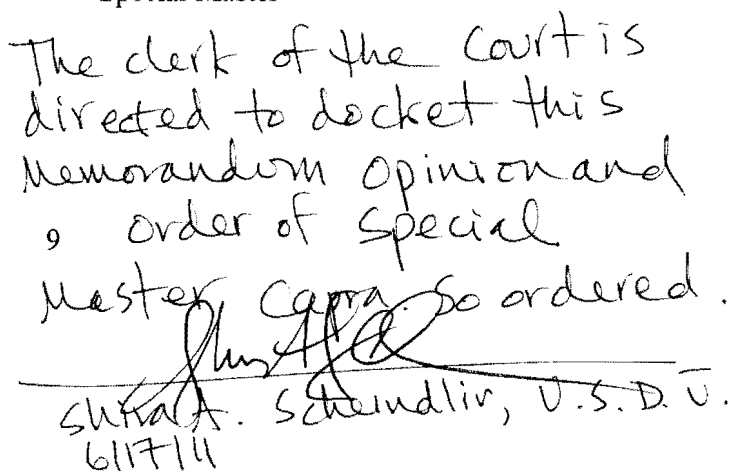 Special Master
The clerk of the Court is
directed to docket this
Memorandum Opinion and
9 order of Special
Master Capra. So ordered.
Shira A. Scheindlin, U.S.D.J.
6/17/11